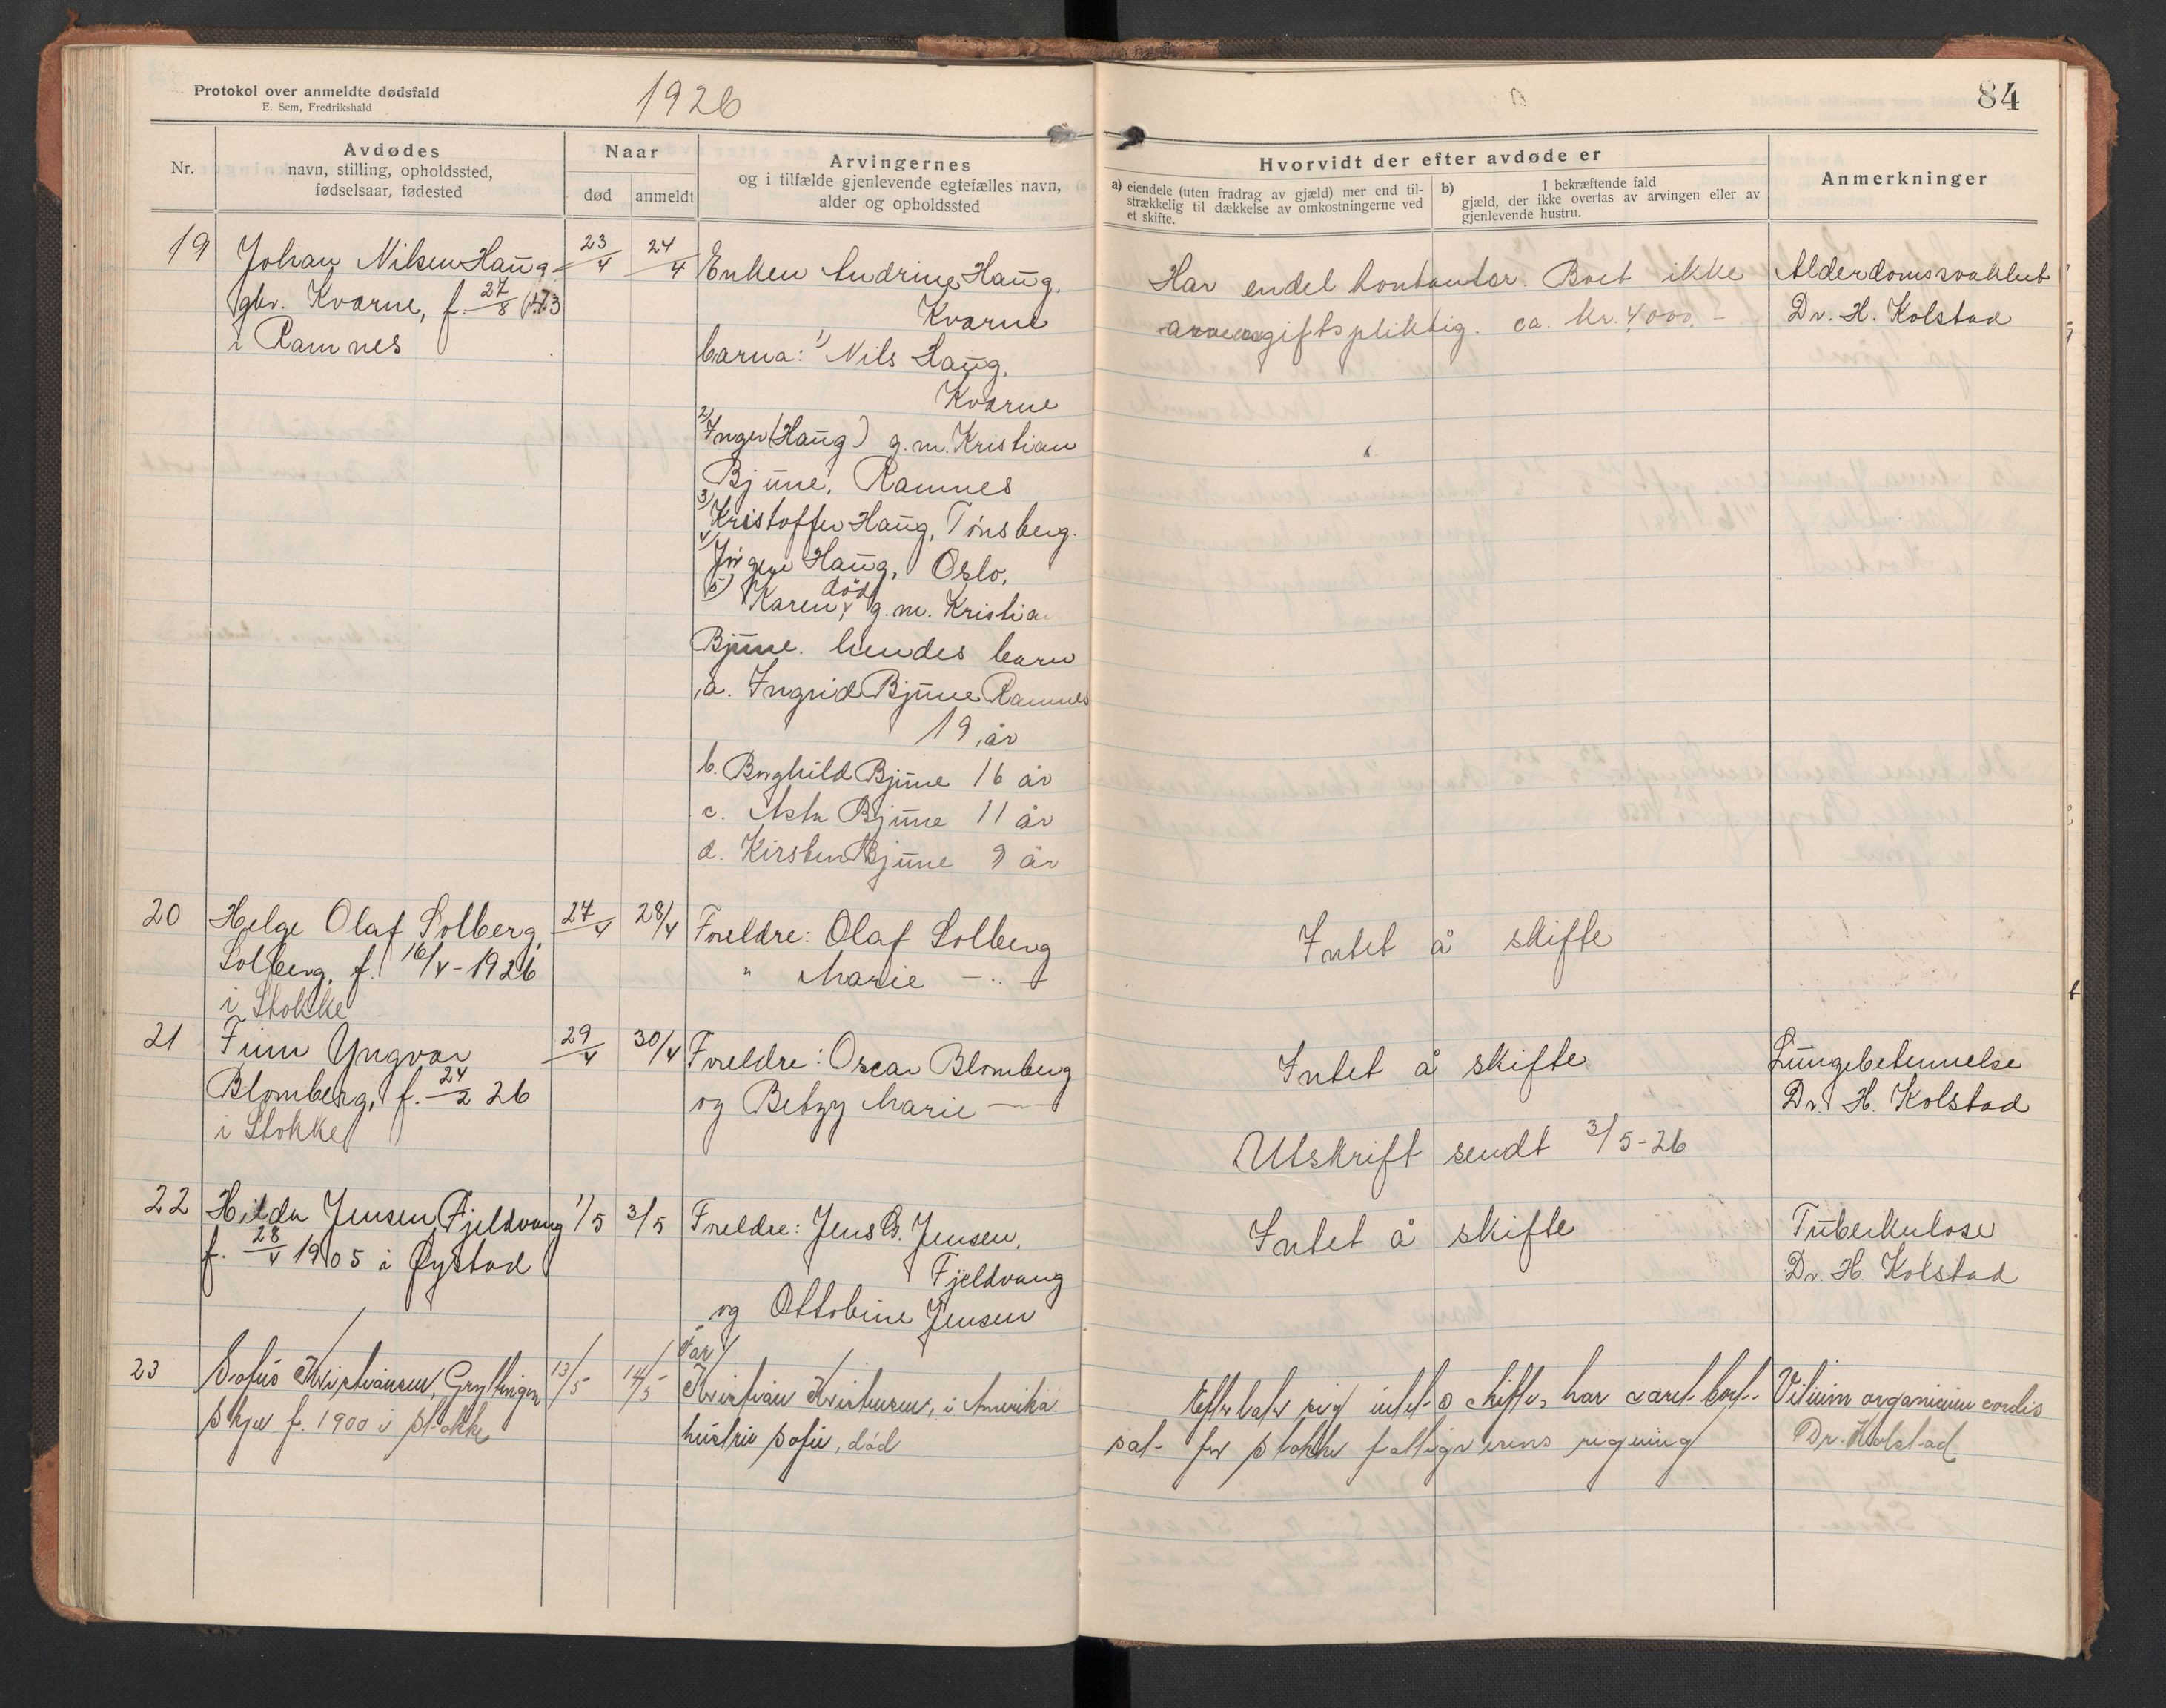 Protokol over anmeldte dødsfald
E. Sem, Fredrikshald
1926
84
Nr.
Avdødes
navn, stilling, opholdssted,
fødselsaar, fødested
Naar
død
anmeldt
Arvingernes
og i tilfælde gjenlevende egtefælles navn,
alder og opholdssted
Hvorvidt der efter avdøde er
a) eiendele (uten fradrag av gjæld) mer end til-
strækkelig til dækkelse av omkostningerne ved
et skifte.
b) I bekræftende fald
gjæld, der ikke overtas av arvingen eller av
gjenlevende hustru.
Anmerkninger
19
Johan Nilsen Haug
gbr. Kvarne, f. 27/8
i Ramnes
23/4
24/4
Enken Andrine Haug,
Kvarne
barna: 1) Nils Haug,
Kvarne
2) Inger (Haug) g.m. Kristian
Bjune, Ramnes
3) Kristoffer Haug, Tønsberg.
4) Jørgen Haug, Oslo,
5) Karen, død g.m. Kristia
Bjune. hendes barn
a. Ingrid Bjune Ramnes
19 år
b. Borghild Bjune 16 år
c. Asta Bjune 11 år
d. Kirsten Bjune 9 år
Har endel kontanter. Boet ikke
arveavgiftspliktig. ca. kr. 4000.-
Alderdomssvakhet
Dr. H. Kolstad
20
Helge Olaf Solberg,
Solberg, f. 16/4-1926
i Stokke
27/4
28/4
Foreldre: Olaf Solberg
" Marie -"-
Intet å skifte
21
Finn Yngvar
Blomberg, f. 24/2 26
i Stokke
29/4
30/4
Foreldre: Oscar Blomberg
og Betzy Marie —
Intet å skifte
Lungebetennelse
Dr. H. Kolstad
Utskrift sendt 3/5-26
22
Hilda Jensen, Fjeldvang
f. 28/4 1905 i Øystad
1/5
3/5
Foreldre: Jens B. Jensen,
Fjeldvang
og Ottobine Jensen
Intet å skifte
Tuberkulose
Dr. H. Kolstad
23
Sofus Kristiansen, Gryttingen
Skjee f. 1900 i Stokke
13/5
14/5
Far
Kristian Kristensen, i Amerika
hustru Sofie, død
Efterlater sig intet å skifte, har været bort-
sat for Stokke fattigvesens regning
Vitium organicum cordis
Dr. Kolstad